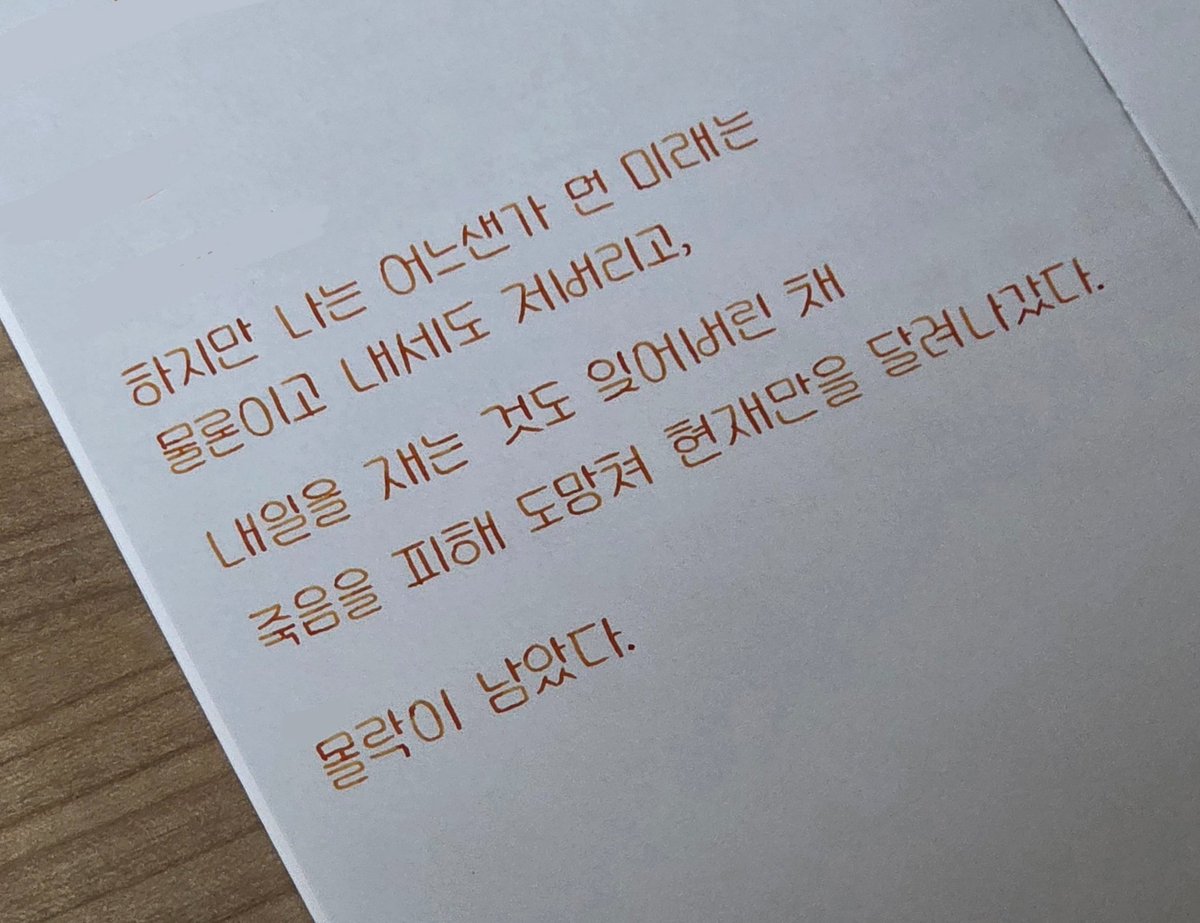 하지만 나는 어느샌가 먼 미래는
물론이고 내세도 저버리고,
내일을 재는 것도 잊어버린 채
죽음을 피해 도망쳐 현재만을 달려나갔다.
몰락이 남았다.